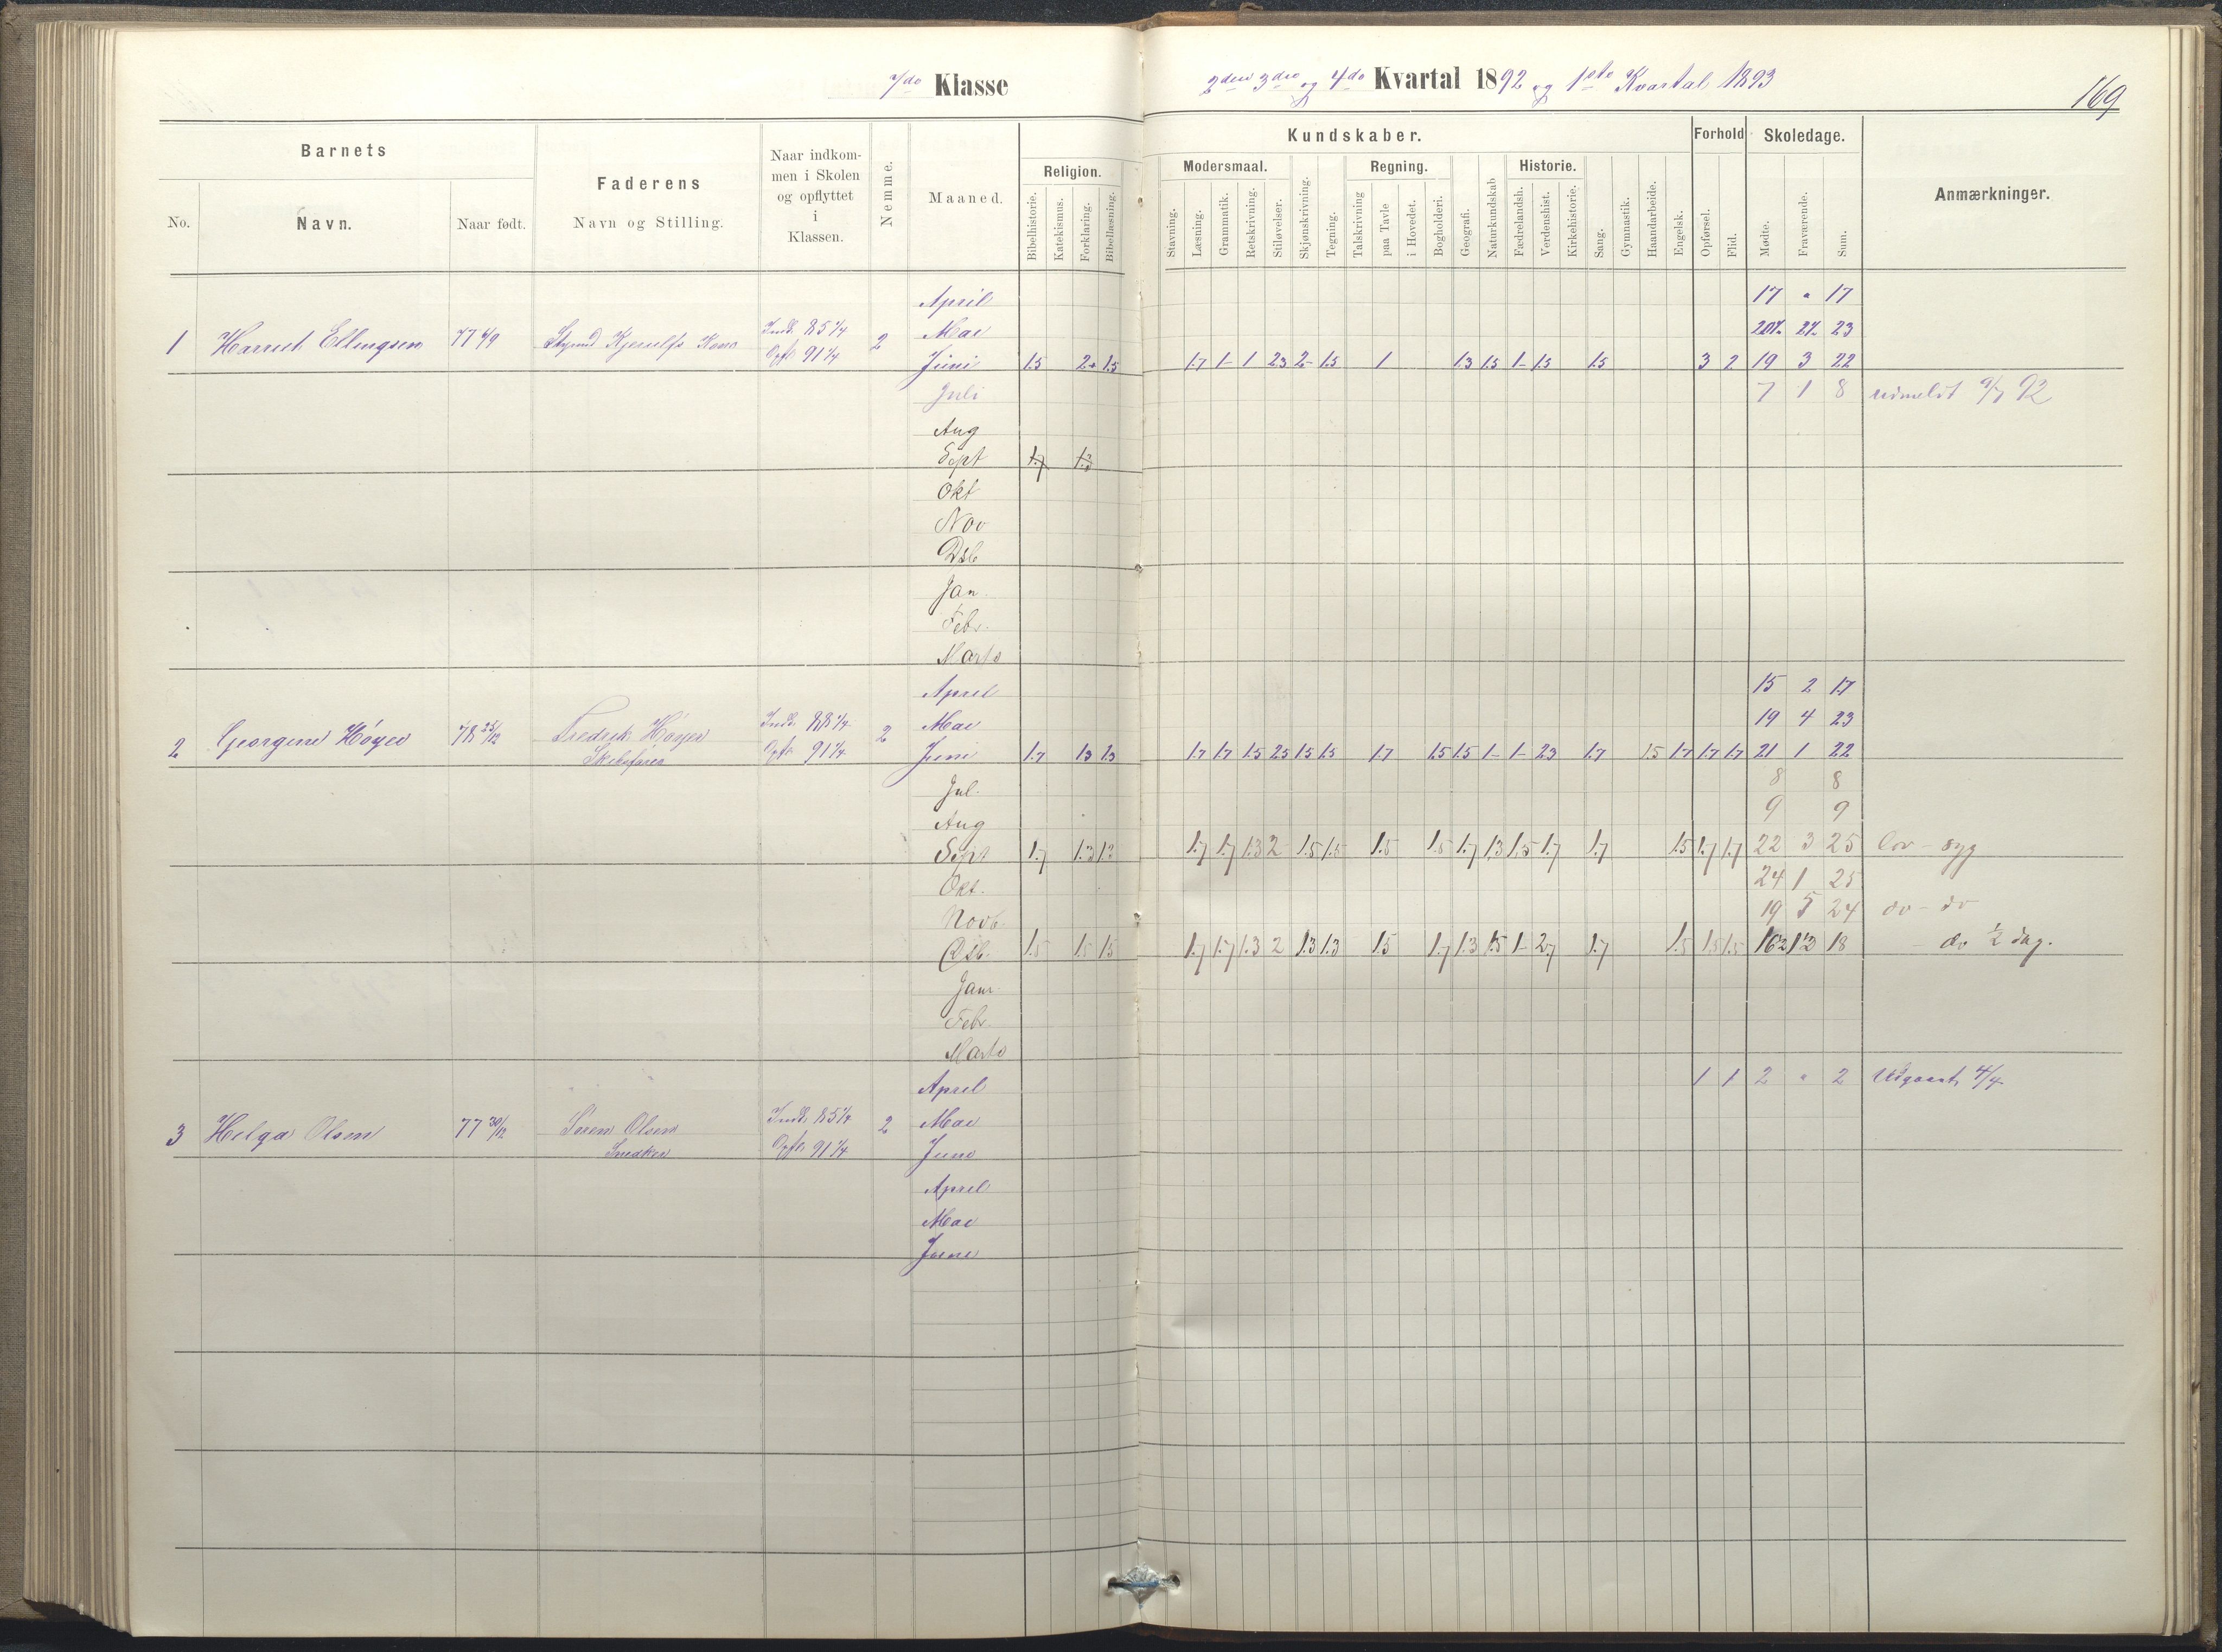 7de Klasse
2den 3die og 4de Kvartal 1892 og 1ste Kvartal 1893
169
Barnets
Faderens
Naar indkom-
men i Skolen
og opflyttet
i
Klassen.
Nemme.
Maaned.
Religion.
Kundskaber.
Modersmaal.
Regning.
Historie.
Forhold
Skoledage.
Anmærkninger.
No.
Navn.
Naar født.
Navn og Stilling.
Bibelhistorie.
Katekismus.
Forklaring.
Bibellæsning.
Stavning.
Læsning.
Grammatik.
Retskrivning.
Stiløvelser.
Skjønskrivning.
Tegning.
Talskrivning
paa Tavle
i Hovedet.
Bogholderi.
Geografi.
Naturkundskab
Fædrelandsh.
Verdenshist.
Kirkehistorie.
Sang.
Gymnastik.
Haandarbeide.
Engelsk.
Opførsel.
Flid.
Mødte.
Fraværende.
Sum.
April 17 " 17
1 Harriet Ellingsen 77 4/9 Indk 85 1/4 2 Mai 20½ 2½ 23
Opfl 91 1/4 Juni 1.5 2- 1.5 1.7 1- 1 2.3 2- 1.5 1 1.3 1.5 1- 1.5 1.5 3 2 19 3 22
Juli 7 1 8 udmeldt 9/7 92
Aug
Sept 1.7 1.3
Okt
Nov
Dsb
Jan.
Febr.
Marts
April 15 2 17
2 Georgine Høyer 78 25/12 Fredrik Høyer Indk 88 1/4 2 Mai 19 4 23
Opfl 91 1/4 Juni 1.7 1.3 1.3 1.7 1.7 1.5 2.5 1.5 1.5 1.7 1.5 1.5 1- 1- 2.3 1.7 1.5 1.7 1.7 1.7 21 1 22
Jul. 8 8
Aug 9 9
Sept 1.7 1.3 1.3 1.7 1.7 1.3 2 1.5 1.5 1.5 1.5 1.7 1.3 1.5 1.7 1.7 1.5 1.7 1.7 22 3 25 lov - syg
Okt. 24 1 25
Novb. 19 5 24 do - do
Dsb. 1.5 1.5 1.5 1.7 1.7 1.3 2 1.3 1.3 1.5 1.7 1.3 1.5 1- 2.7 1.7 1.5 1.5 1.5 16½ 1½ 18 do ½ dag.
Janr.
Febr.
Marts
April 1 1 2 " 2 Udgaaet 4/4
3 Helga Olsen 77 30/12 Søren Olsen Indk 85 1/4 2 Mai
Snedker Opfl 91 1/4 Juni
April
Mai
Juni